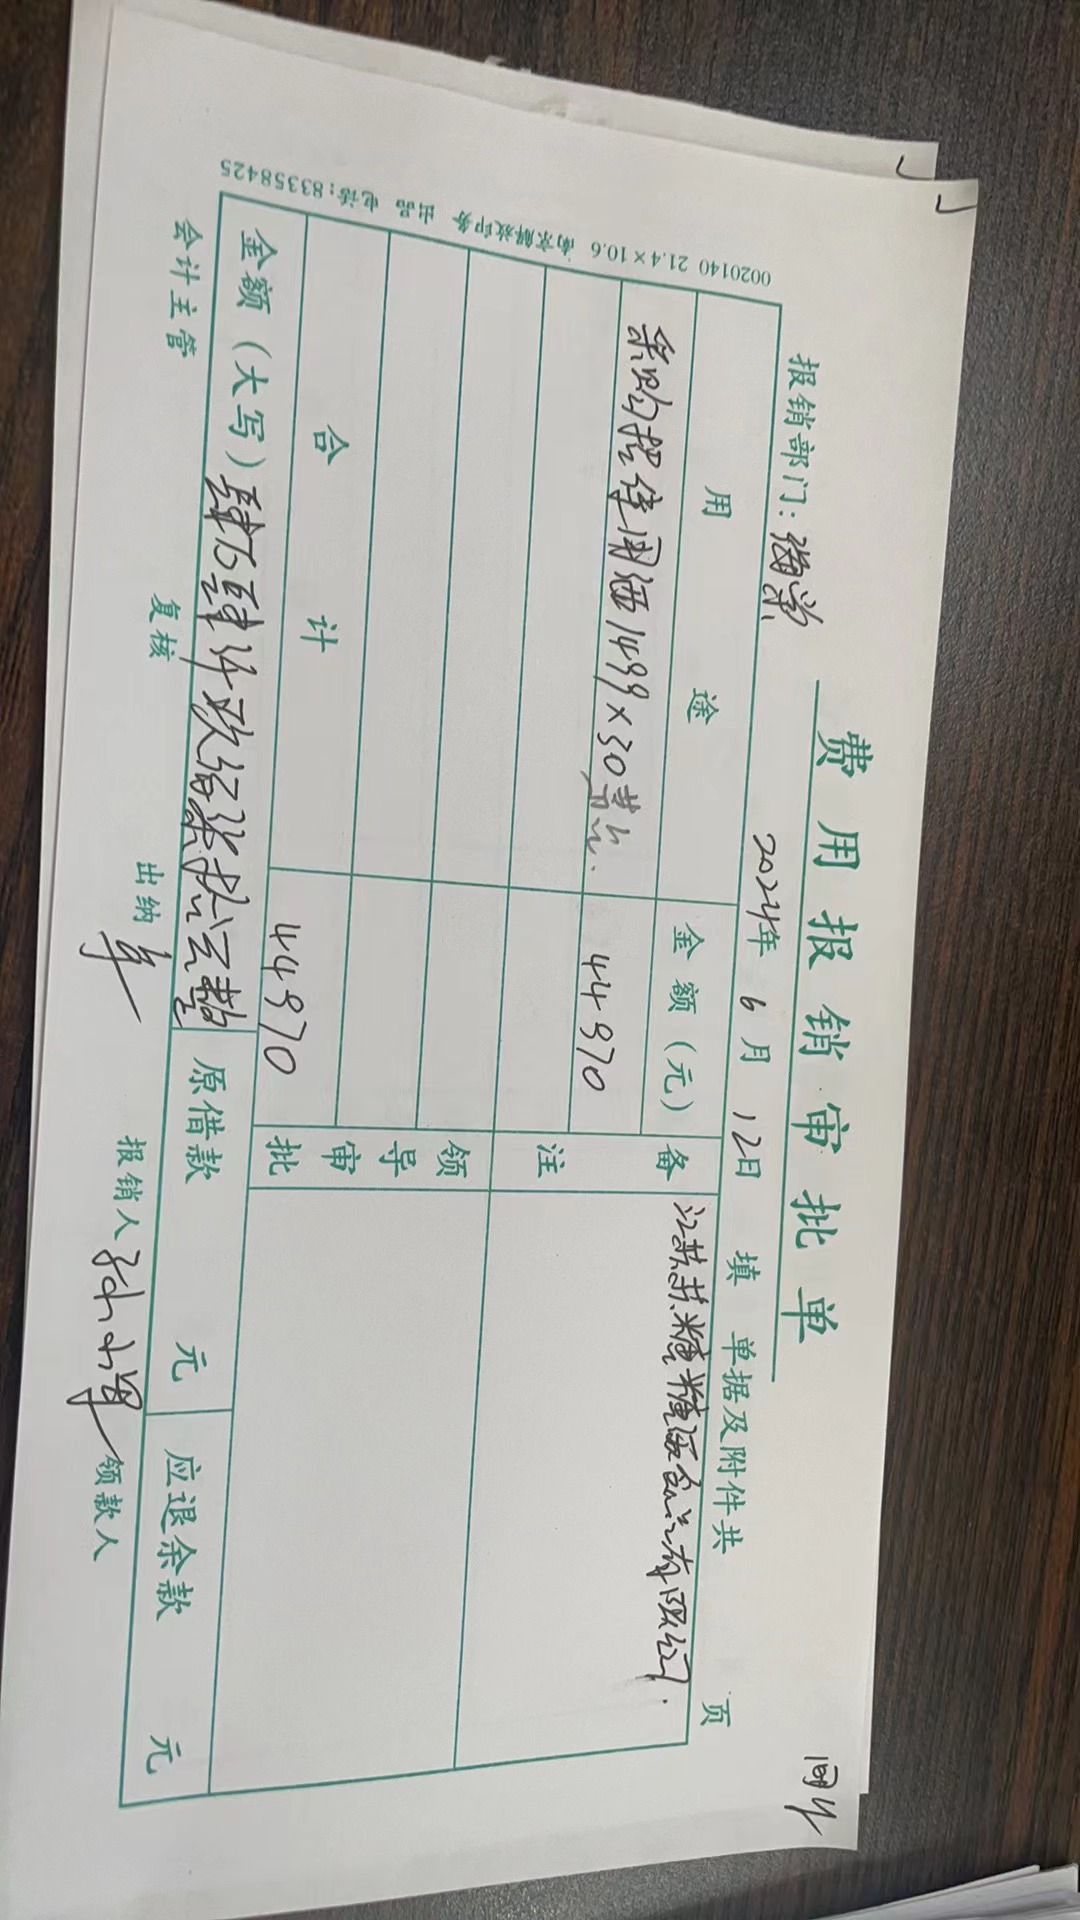 费用报销审批单
报销部门：瀚崇 2024年 6月 12日 填 单据及附件共 页
用途 金额（元） 备注 江苏苏糖糖酒食品有限公司.
采购招待用酒1499×30 44970
领导审批
合计 44970
金额（大写）肆万肆仟玖佰柒拾元整 原借款 元 应退余款 元
会计主管 复核 出纳 报销人 领款人
0020140 21.4×10.6 南京解放印务 出品 电话:83358425